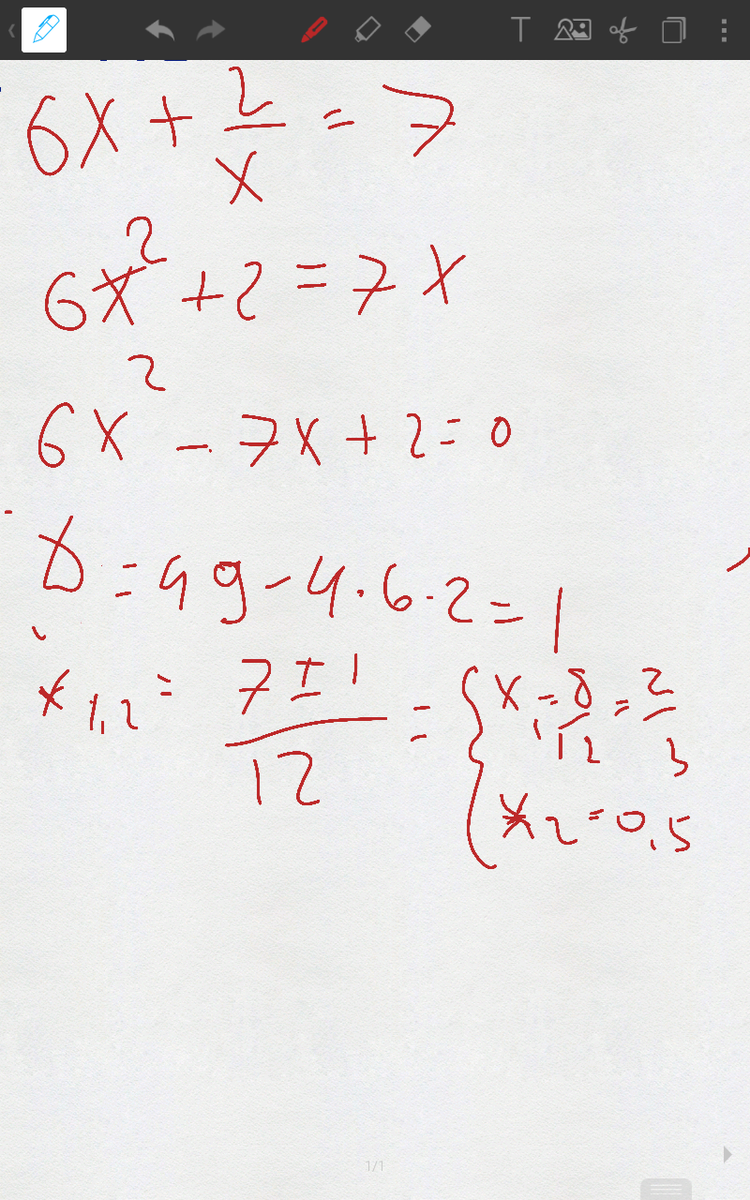 T
6x + 2/x = 7
6x² + 2 = 7x
6x² - 7x + 2 = 0
D = 49 - 4·6·2 = 1
x1,2 = (7 ± 1)/12 = { x1 = 8/12 = 2/3
x2 = 0,5
1/1